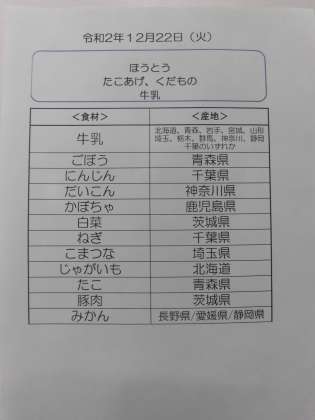 令和2年12月22日（火）
ほうとう
たこあげ、くだもの
牛乳
＜食材＞ ＜産地＞
牛乳 北海道、青森、岩手、宮城、山形
埼玉、栃木、群馬、神奈川、静岡
千葉のいずれか
ごぼう 青森県
にんじん 千葉県
だいこん 神奈川県
かぼちゃ 鹿児島県
白菜 茨城県
ねぎ 千葉県
こまつな 埼玉県
じゃがいも 北海道
たこ 青森県
豚肉 茨城県
みかん 長野県/愛媛県/静岡県